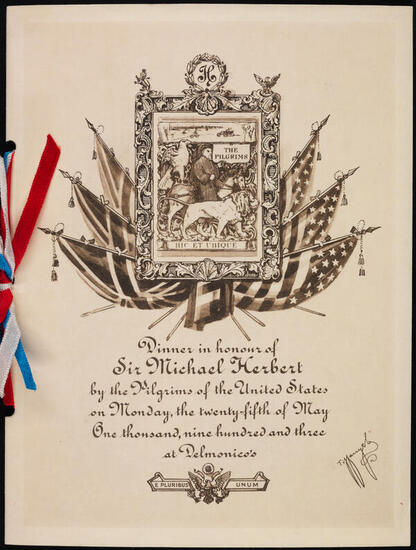 H
THE
PILGRIMS
HIC ET UBIQUE
Dinner in honour of
Sir Michael Herbert
by the Pilgrims of the United States
on Monday, the twenty-fifth of May
One thousand, nine hundred and three
at Delmonico's
E PLURIBUS UNUM